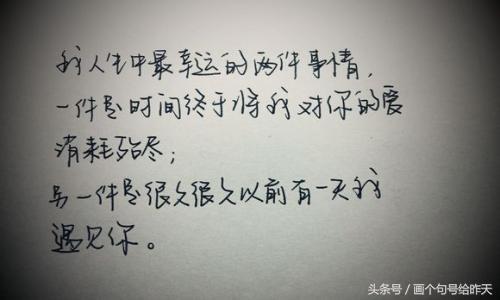 我人生中最幸运的两件事情，
一件是时间终于将我对你的爱
消耗殆尽；
另一件是很久很久以前有一天我
遇见你。
头条号／画个句号给昨天